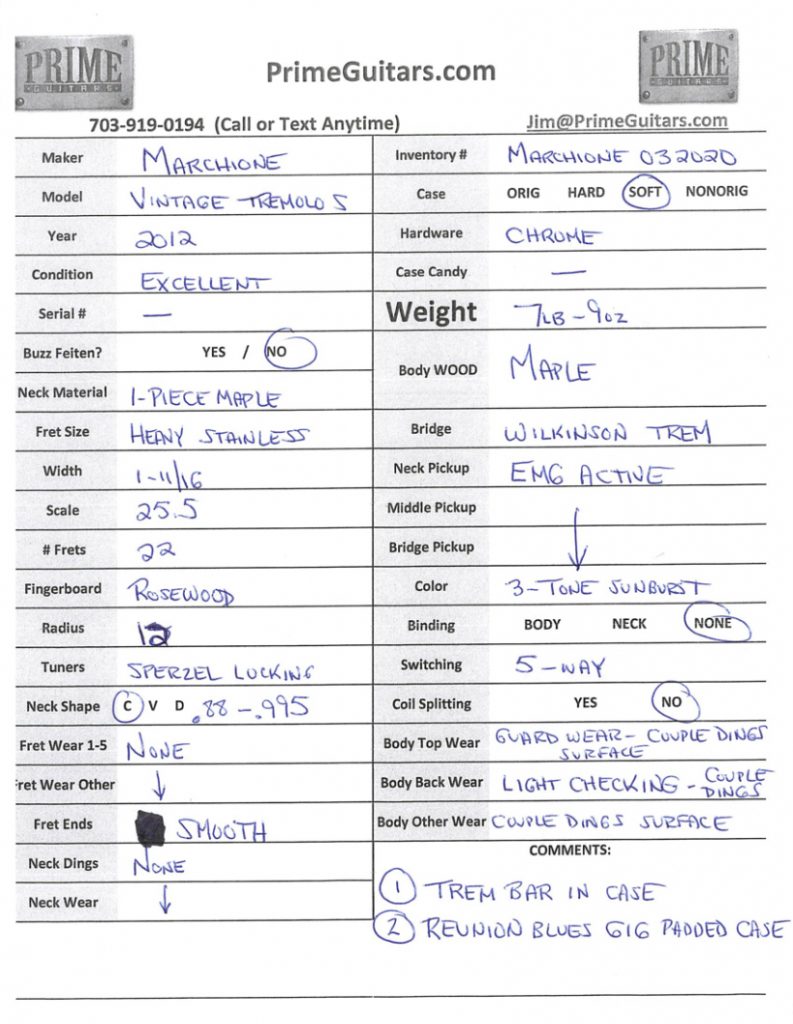 PRIME
GUITARS
PrimeGuitars.com
PRIME
GUITARS
703-919-0194 (Call or Text Anytime)
Jim@PrimeGuitars.com
Maker MARCHIONE
Model VINTAGE TREMOLO S
Year 2012
Condition EXCELLENT
Serial # —
Buzz Feiten? YES / NO
Neck Material 1-PIECE MAPLE
Fret Size HEAVY STAINLESS
Width 1-11/16
Scale 25.5
# Frets 22
Fingerboard ROSEWOOD
Radius 12
Tuners SPERZEL LOCKING
Neck Shape C V D .88-.995
Fret Wear 1-5 NONE
Fret Wear Other ↓
Fret Ends SMOOTH
Neck Dings NONE
Neck Wear ↓
Inventory # MARCHIONE 032020
Case ORIG HARD SOFT NONORIG
Hardware CHROME
Case Candy —
Weight 7LB-9OZ
Body WOOD MAPLE
Bridge WILKINSON TREM
Neck Pickup EMG ACTIVE
Middle Pickup
Bridge Pickup ↓
Color 3-TONE SUNBURST
Binding BODY NECK NONE
Switching 5-WAY
Coil Splitting YES NO
Body Top Wear GUARD WEAR- COUPLE DINGS
SURFACE
Body Back Wear LIGHT CHECKING - COUPLE
DINGS
Body Other Wear COUPLE DINGS SURFACE
COMMENTS:
1 TREM BAR IN CASE
2 REUNION BLUES GIG PADDED CASE